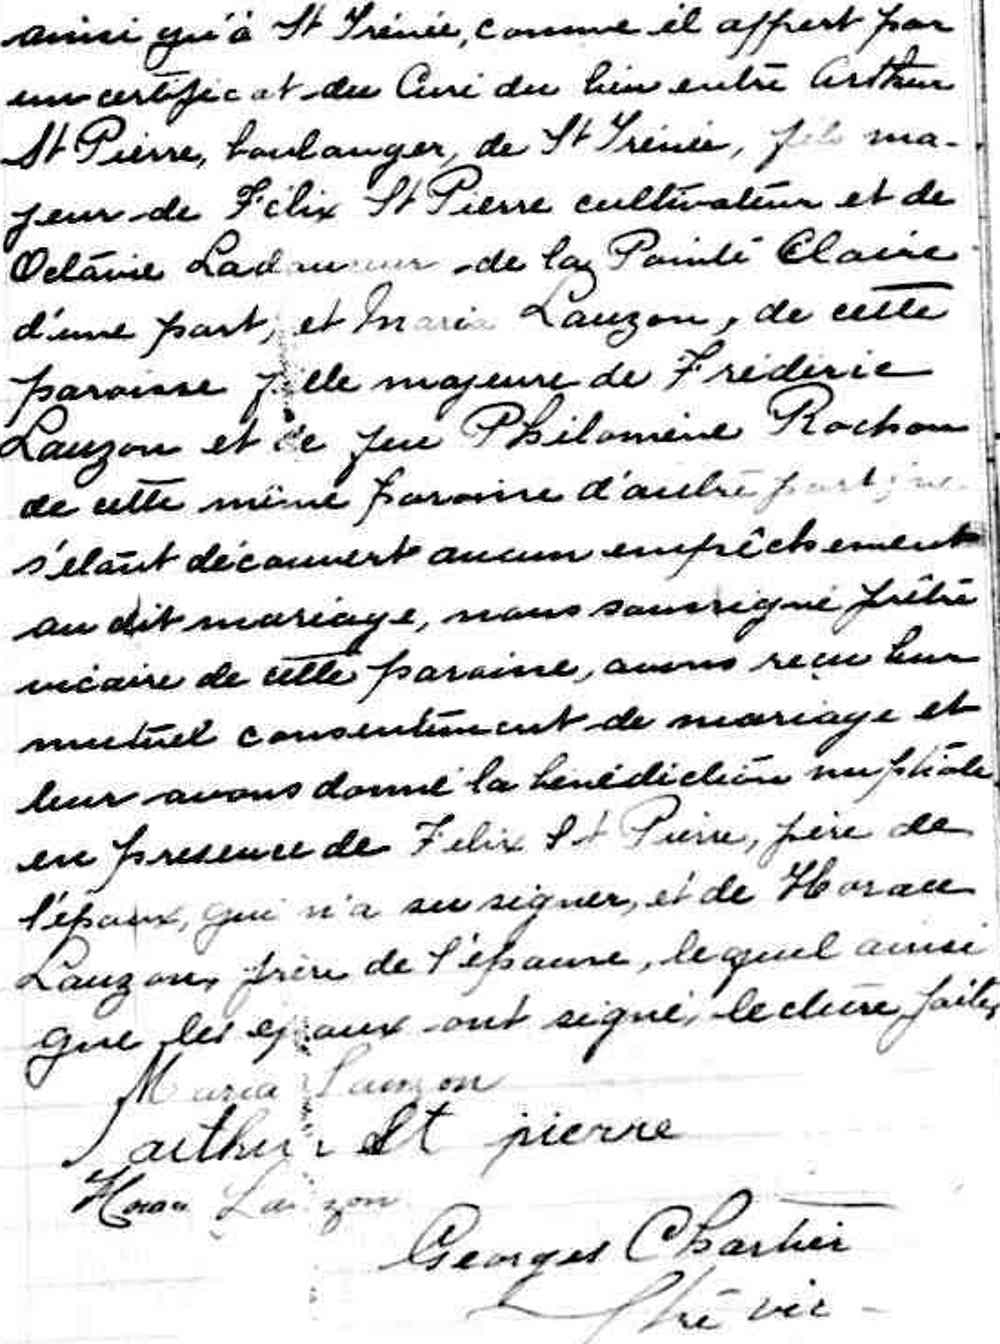 ainsi qu'à St Irénée, comme il appert par
un certificat du Curé du lieu entre Arthur
St Pierre, boulanger, de St Irénée, fils ma-
jeur de Félix St Pierre cultivateur et de
Octavie Ladouceur de la Pointe Claire
d'une part, et Maria Lauzon, de cette
paroisse fille majeure de Fréderic
Lauzon et de feu Philomène Rochon
de cette même paroisse d'autre part; ne
s'étant découvert aucun empêchement
au dit mariage, nous soussigné prêtre
vicaire de cette paroisse, avons reçu leur
mutuel consentement de mariage et
leur avons donné la bénédiction nuptiale
en presence de Felix St Pierre, père de
l'époux, qui n'a su signer, et de Horace
Lauzon, frère de l'épouse, lequel ainsi
que les époux ont signé, lecture faite,
Maria Lauzon
arthur St pierre
Horace Lauzon
Georges Chartier
Ptre vic -